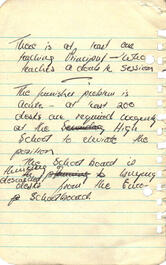 There is at least one
teaching Principal – who
teaches a double session
The furniture problem is
acute – at least 200
desks are required urgently
at the Secondary High
School to elevate the
position
The School Board is
thinking of planning to buying
desks from the
School Board